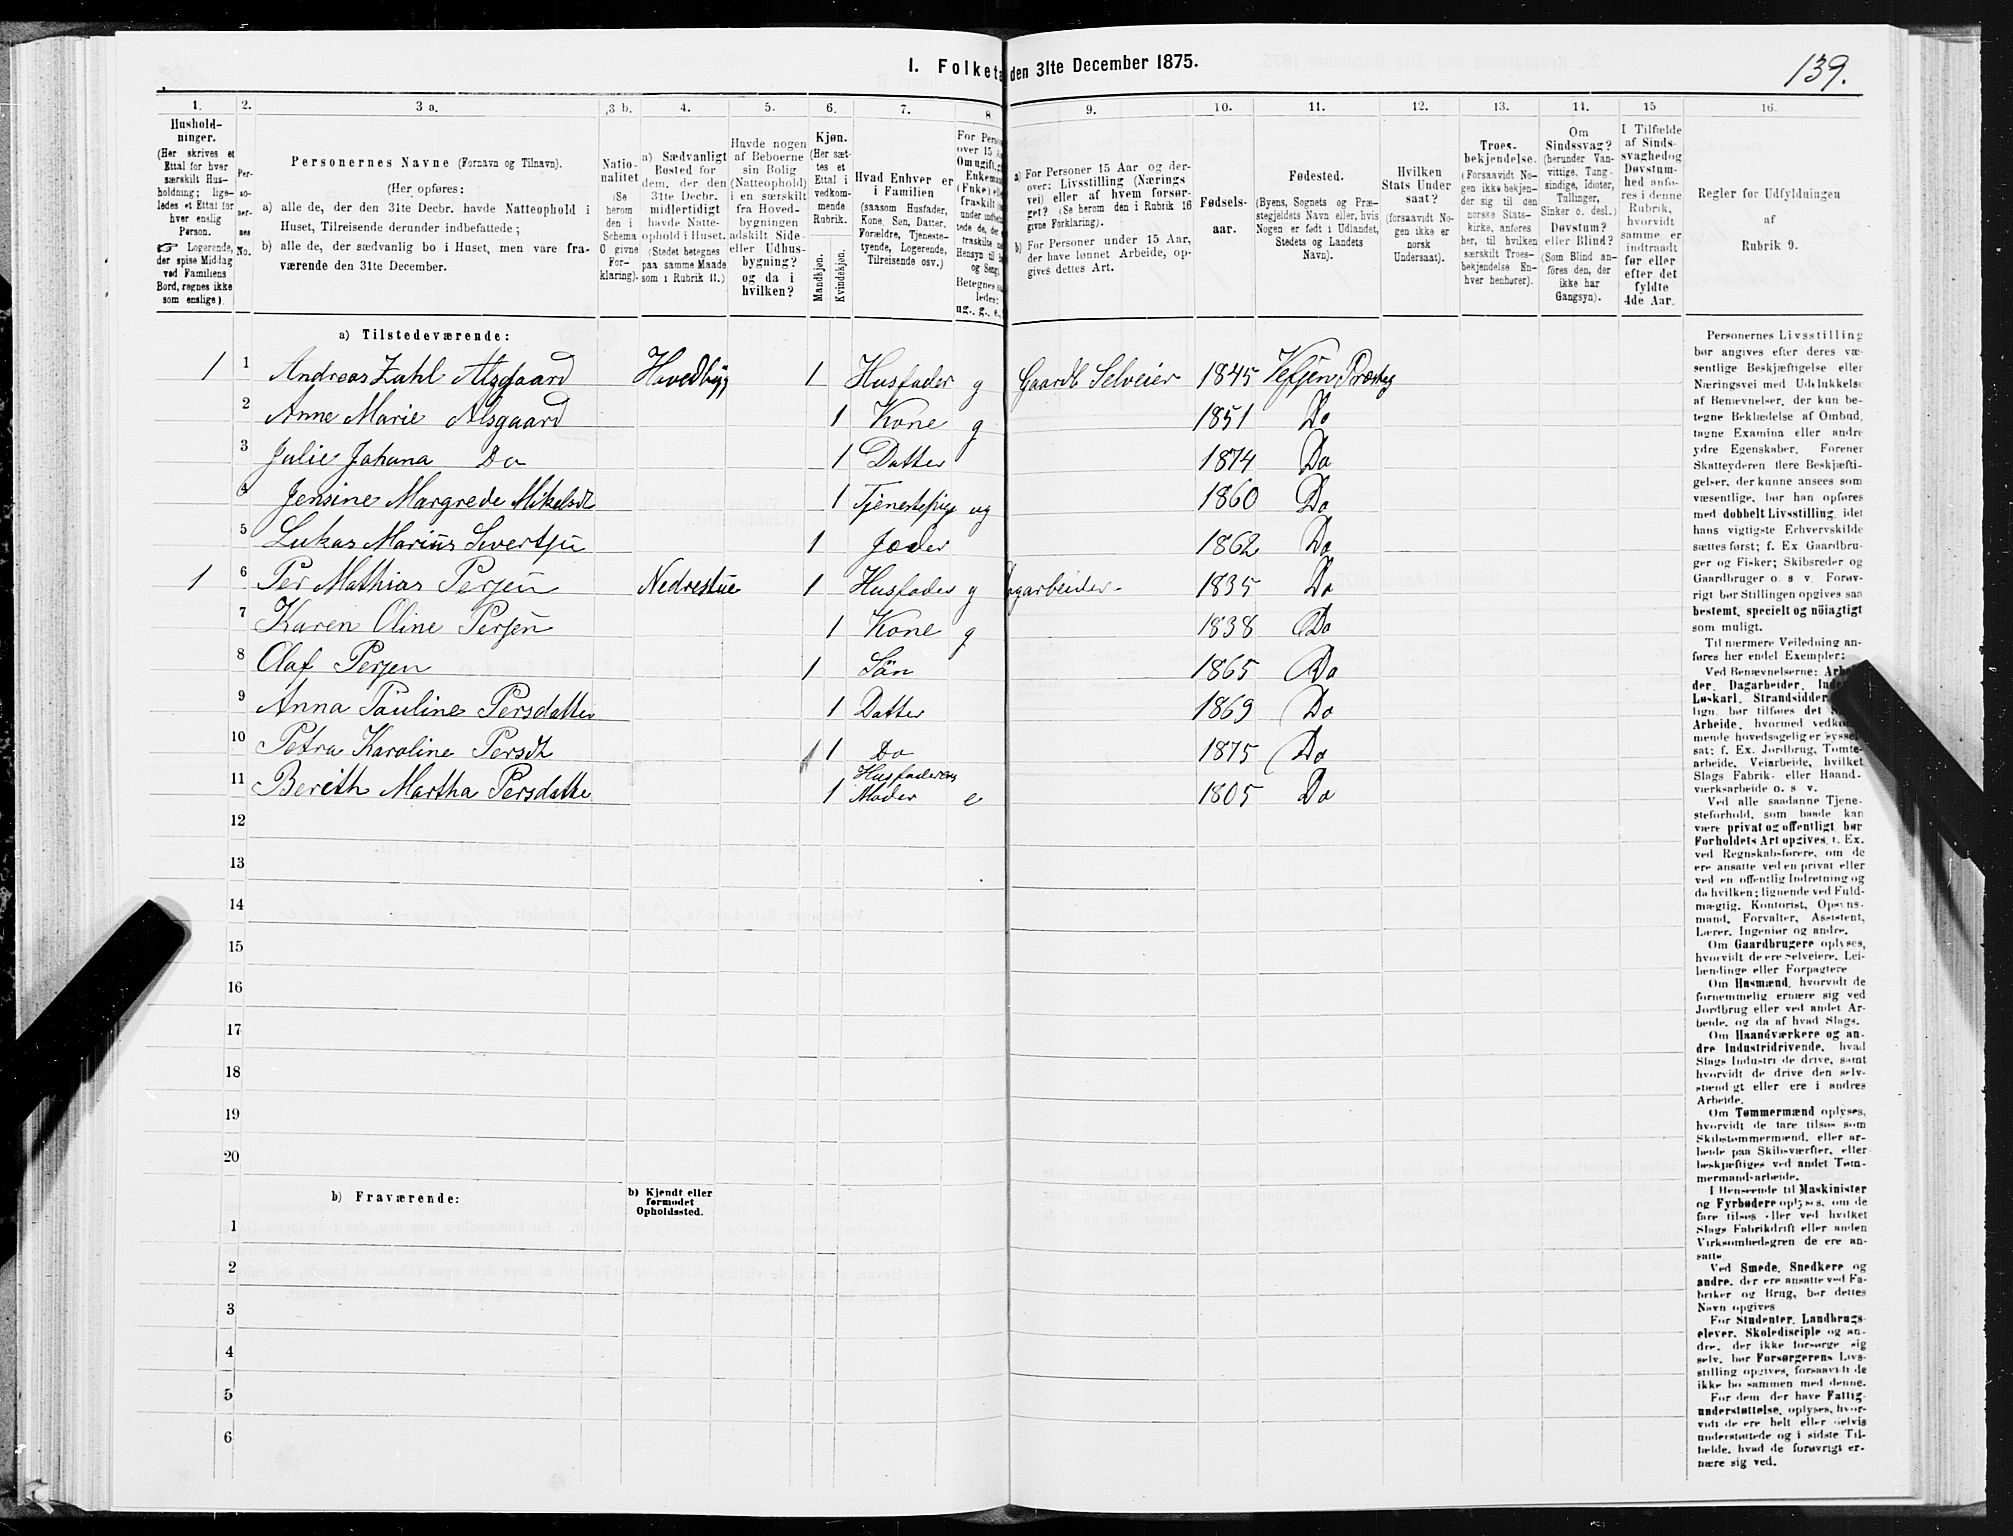 139.
I. Folketæ den 31te December 1875.
1. 2. 3 a. 3 b. 4. 5. 6. 7. 8. 9. 10. 11. 12. 13. 14. 15 16.
Hushold-
ninger.
(Her skrives et
Ettal for hver
særskilt Hus-
holdning; lige-
ledes et Ettal for
hver enslig
Person.
☞ Logerende,
der spise Middag
ved Familiens
Bord, regnes ikke
som enslige).
Per-
so-
ner-
nes
No.
Personernes Navne (Fornavn og Tilnavn).
(Her opføres:
a) alle de, der den 31te Decbr. havde Natteophold i
Huset, Tilreisende derunder indbefattede;
b) alle de, der sædvanlig bo i Huset, men vare fra-
værende den 31te December.
Natio-
nalitet
(Se
herom
den i
Schema
O givne
For-
klaring).
a) Sædvanligt
Bosted for
dem, der den
31te Decbr.
midlertidigt
havde Natte-
ophold i Huset.
(Stedet betegnes
paa samme Maade
som i Rubrik 11.)
Havde nogen
af Beboerne
sin Bolig
(Natteophold)
i en særskilt
fra Hoved-
bygningen
adskilt Side-
eller Udhus-
bygning?
og da i
hvilken?
Kjøn.
(Her sæt-
tes et
Ettal i
vedkom-
mende
Rubrik.
Mandkjøn.
Kvindekjøn.
Hvad Enhver er
i Familien
(saasom Husfader,
Kone, Søn, Datter,
Forældre, Tjeneste-
tyende, Logerende,
Tilreisende osv.)
For Perso
over 15 A
Om ugift, g
Enkeman
(Fnke) el
fraskilt (
under indbef
tede de, der e
fraskilte m
Hensyn til b
og Seng)
Betegnes sa
ledes:
ug., g., e.,
a) For Personer 15 Aar og der-
over: Livsstilling (Nærings
vei) eller af hvem forsør-
get? (Se herom den i Rubrik 16
givne Forklaring).
b) For Personer under 15 Aar,
der have lønnet Arbeide, op-
gives dettes Art.
Fødsels-
aar.
Fødested.
(Byens, Sognets og Præ-
stegjeldets Navn eller, hvis
Nogen er født i Udlandet,
Stedets og Landets
Navn).
Hvilken
Stats Under
saat?
(forsaavidt No-
gen ikke er
norsk
Undersaat).
Troes-
bekjendelse.
(Forsaavidt No-
gen ikke bekjen-
der sig til den
norske Stats-
kirke, anføres
her, til hvilken
særskilt Troes-
bekjendelse En-
hver henhører).
Om
Sindssvag?
(herunder Van-
vittige, Tung-
sindige, Idioter,
Tullinger,
Sinker o. desl.)
Døvstum?
eller Blind?
(Som Blind an-
føres den, der
ikke har
Gangsyn).
I Tilfælde
af Sinds-
svaghed og
Døvstum-
hed anfø-
res i denne
Rubrik,
hvorvidt
samme er
indtraadt
før eller
efter det
fyldte
4de Aar.
Regler for Udfyldningen
af
Rubrik 9.
a) Tilstedeværende:
1 1 Andreas Zahl Alsgaard Hovedbyg 1 Husfader g Gaardb Selveier 1845 Vefsen Præsteg
2 Anne Marie Alsgaard 1 Kone g 1851 Do
3 Julie Johana Do 1 Datter 1874 Do
4 Jensine Margrede Mikelsdt 1 Tjenestepige ug 1860 Do
5 Lukas Marius Sivertsen 1 1862 Do
1 6 Per Mathias Persen Nedrestue 1 Husfader g Dagarbeider 1835 Do
7 Karen Oline Persen 1 Kone g 1838 Do
8 Olaf Persen 1 Sön 1865 Do
9 Anna Pauline Persdatter 1 Datter 1869 Do
10 Petra Karoline Persdt 1 Do 1875 Do
11 Berith Martha Persdatte 1 Husfaderens Moder e 1805 Do
12
13
14
15
16
17
18
19
20
b) Fraværende: b) Kjendt eller
formodet
Opholdssted.
1
2
3
4
5
6
Personernes Livsstilling
bør angives efter deres væ-
sentlige Beskjæftigelse eller
Næringsvei med Udelukkelse
af Benævnelser, der kun be-
tegne Beklædelse af Ombud,
tagne Examina eller andre
ydre Egenskaber. Forener
Skatteyderen flere Beskjæfti-
gelser, der kunne ansees som
væsentlige, bør han opføres
med dobbelt Livsstilling, idet
hans vigtigste Erhvervskilde
sættes først; f. Ex Gaardbru-
ger og Fisker; Skibsreder og
Gaardbruger o. s v. Forøv-
rigt bør Stillingen opgives saa
bestemt, specielt og nöiagtigt
som muligt.
Til nærmere Veiledning an-
føres her endel Exempler:
Ved Benævnelserne: Arbei
der, Dagarbeider, Inder
Løskarl, Strandsidder
lign. bør tilføres det
Arbeide, hvormed vedkom-
mende hovedsagelig er syssel
sat; f. Ex. Jordbrug, Tomte-
arbeide, Veiarbeide, hvilket
Slags Fabrik- eller Haand-
værksarbeide o. s v.
Ved alle saadanne Tjene-
steforhold, som baade kan
være privat og offentligt, bør
Forholdets Art opgives, f. Ex.
ved Regnskabsførere, om de
ere ansatte ved en privat eller
ved en offentlig Indretning og
da hvilken; lignende ved Fuld-
mægtig, Kontorist, Opsyns-
mand, Forvalter, Assistent,
Lærer, Ingeniør og andre.
Om Gaardbrugere oplyses,
hvorvidt de ere Selveiere, Lei-
lændinge eller Forpagtere
Om Husmænd, hvorvidt de
fornemmelig ernære sig ved
Jordbrug eller ved andet Ar-
beide, og da af hvad Slags.
Om Haandværkere og an-
dre Industridrivende, hvad
Slags Industri de drive, samt
hvorvidt de drive den selv-
stændigt eller ere i andres
Arbeide.
Om Tømmermænd oplyses,
hvorvidt de fare tilsøs som
Skibstømmermænd, eller ar-
beide paa Skibsværfter, eller
beskjæftiges ved andet Tøm-
mermand-arbeide.
I Henseende til Maskinister
og Fyrbødere oplyses, om de
fare tilsøs eller ved hvilket
Slags Fabrikdrift eller anden
Virksomhedsgren de ere an-
satte.
Ved Smede, Snedkere og
andre, der ere ansatte ved Fa-
briker og Brug, bør dettes
Navn opgives
For Studenter, Landbrugs-
elever, Skoledisciple og an-
dre, der ikke forsørge sig
selv, bør Forsørgerens Livs-
stilling opgives, forsaavidt de
ikke bo sammen med denne.
For dem, der have Fattig-
understøttelse, oplyses, hvor-
vidt de ere helt eller delvis
understøttede og i sidste Til-
fælde, hvad de forøvrigt er-
nære sig ved.